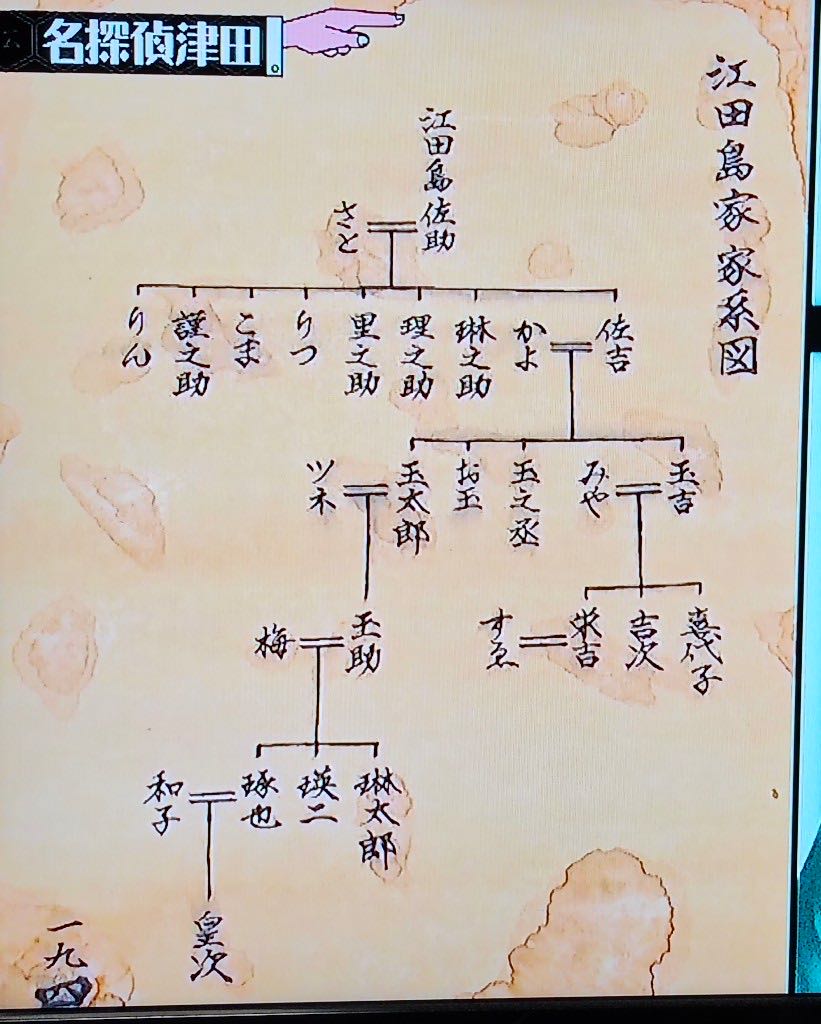 名探偵津田
江田島家家系図
江田島佐助
さと
佐吉
かよ
琳之助
理之助
里之助
りつ
こま
謹之助
りん
玉吉
みや
玉之丞
お玉
玉太郎
ツネ
喜代子
吉次
栄吉
すゑ
玉助
梅
琳太郎
瑛二
琢也
和子
皇次
一九